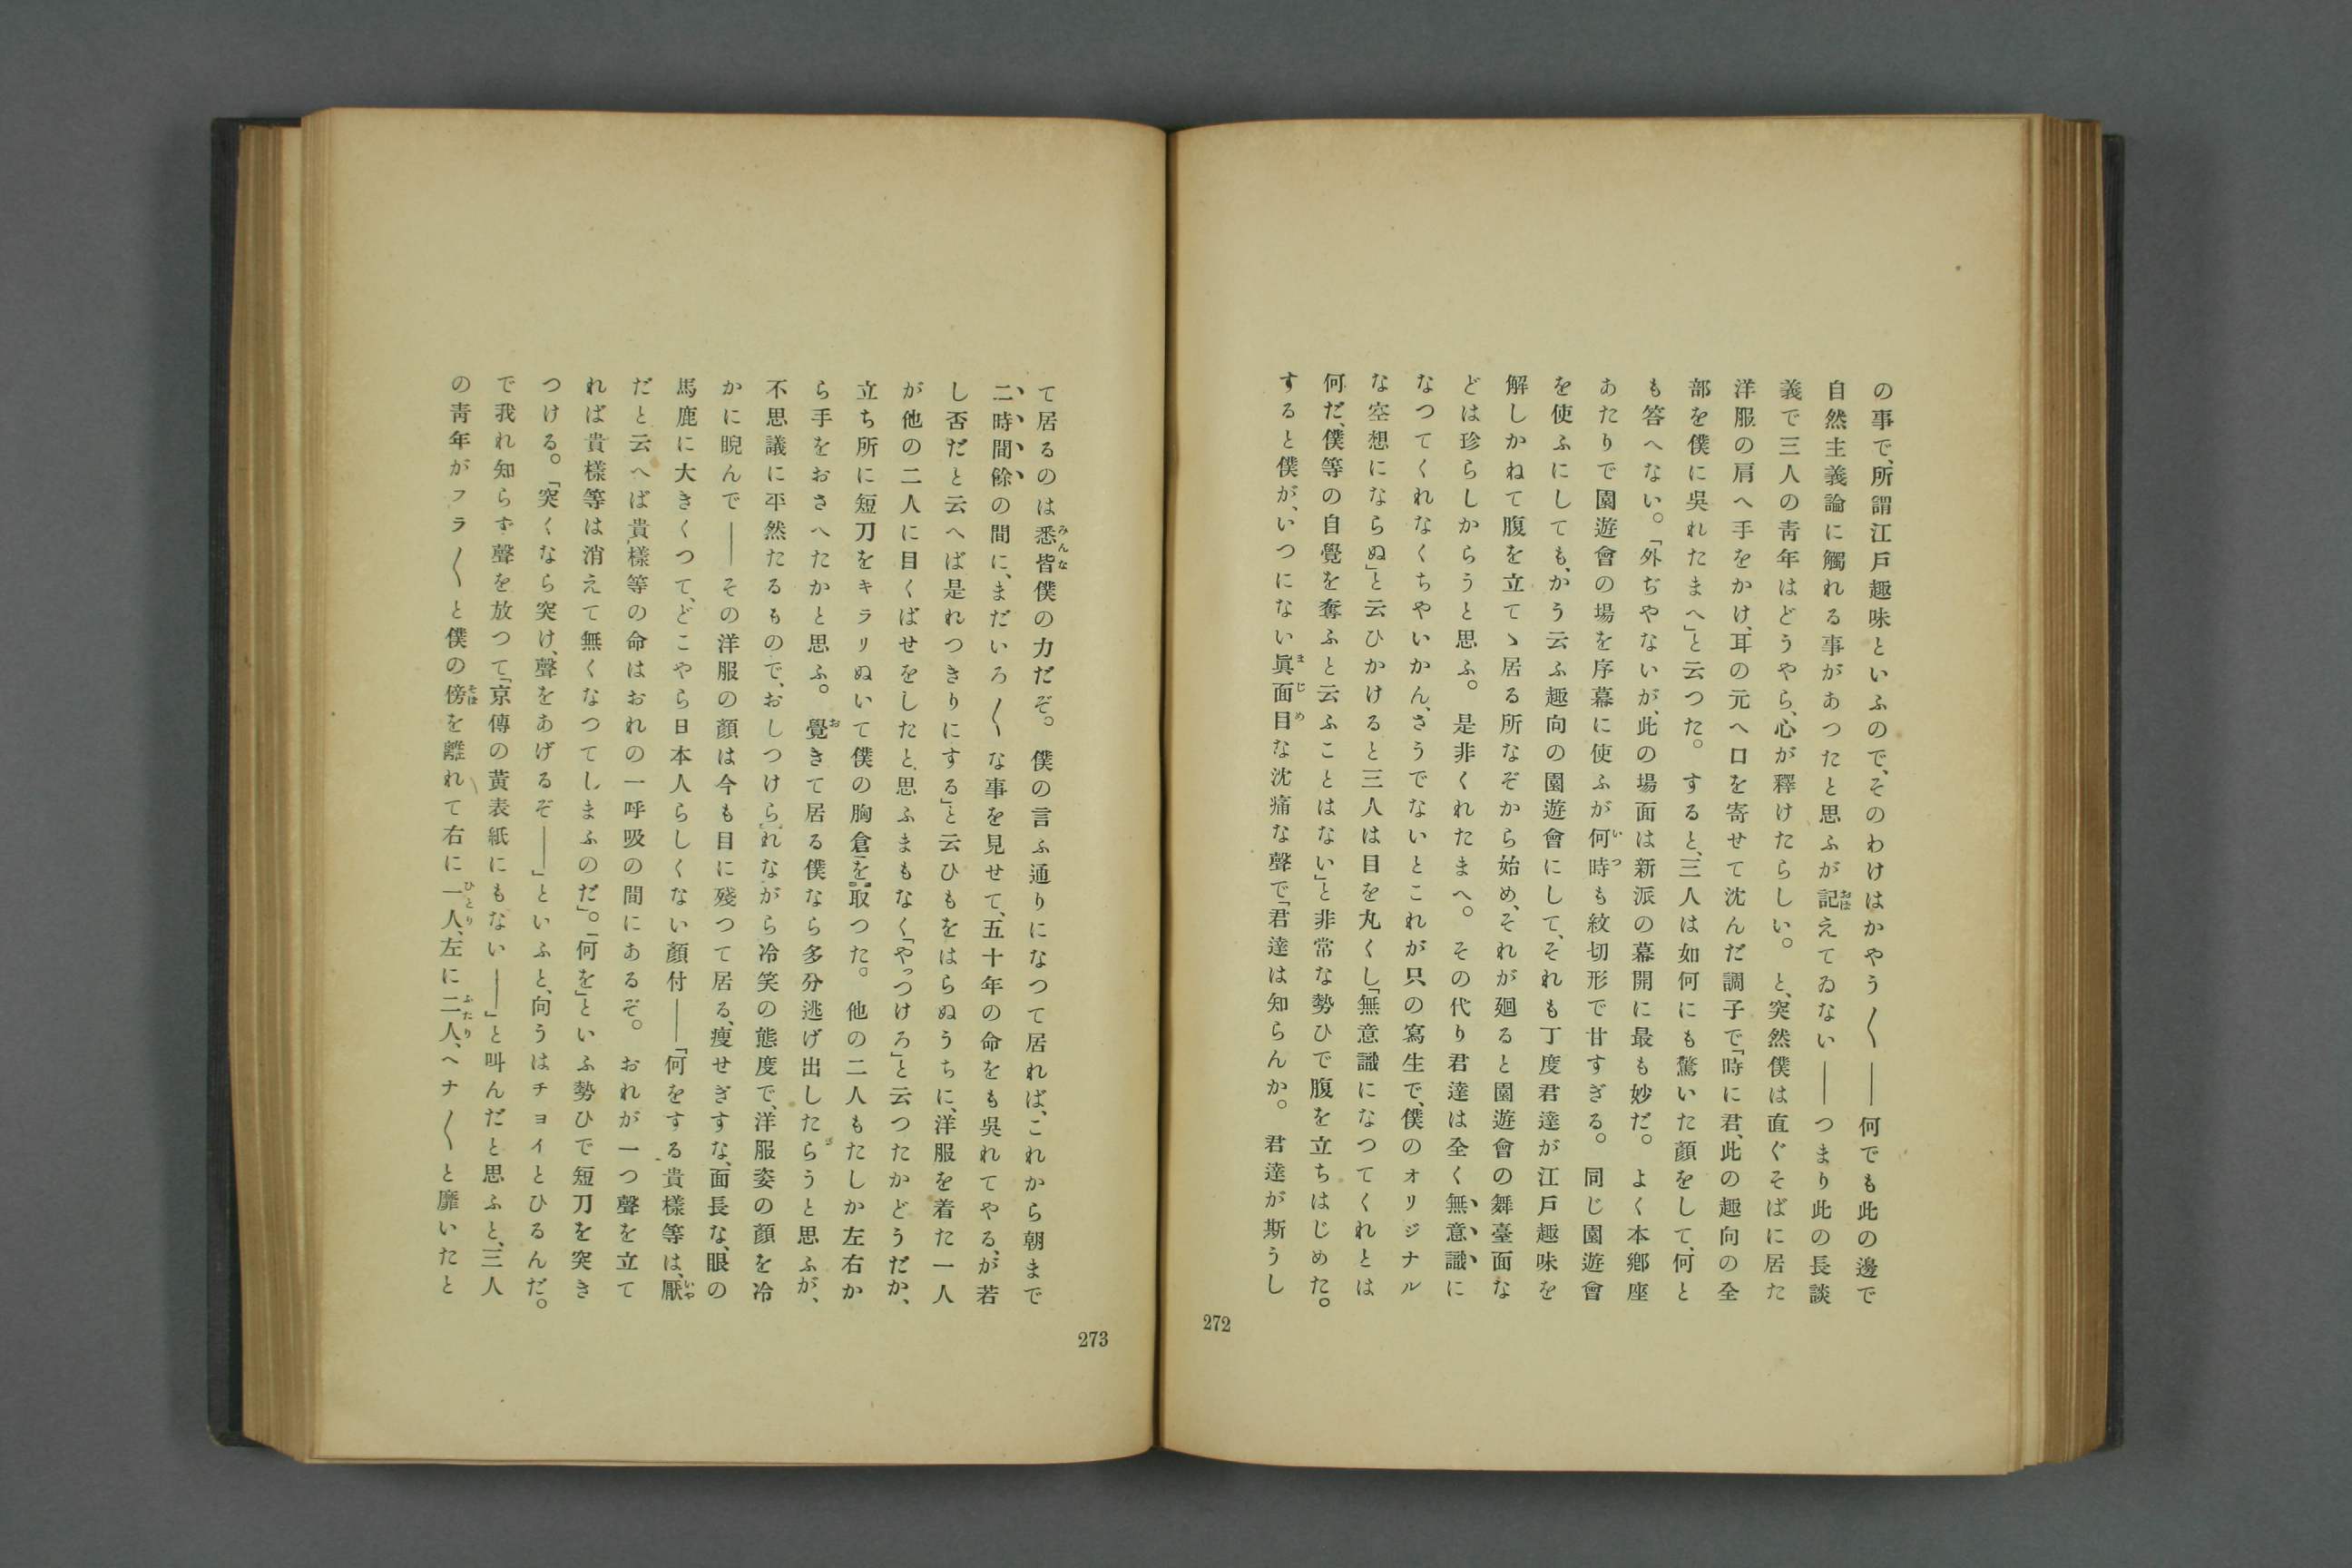 の事で、所謂江戸趣味といふので、そのわけはかやう〱――何でも此の邊で
自然主義論に觸れる事があつたと思ふが記えてゐない――つまり此の長談
義で三人の靑年はどうやら、心が釋けたらしい。と、突然僕は直ぐそばに居た
洋服の肩へ手をかけ、耳の元へ口を寄せて沈んだ調子で「時に君、此の趣向の全
部を僕に吳れたまへ」と云つた。すると、三人は如何にも驚いた顏をして、何と
も答へない。「外ぢやないが、此の場面は新派の幕開に最も妙だ。よく本鄕座
あたりで園遊會の場を序幕に使ふが何時も紋切形で甘すぎる。同じ園遊會
を使ふにしても、かう云ふ趣向の園遊會にして、それも丁度君達が江戸趣味を
解しかねて腹を立てゝ居る所なぞから始め、それが廻ると園遊會の舞臺面な
どは珍らしからうと思ふ。是非くれたまへ。その代り君達は全く無意識に
なつてくれなくちやいかん、さうでないとこれが只の寫生で、僕のオリジナル
な空想にならぬ」と云ひかけると三人は目を丸くし「無意識になつてくれとは
何だ、僕等の自覺を奪ふと云ふことはない」と非常な勢ひで腹を立ちはじめた。
すると僕が、いつにない眞面目な沈痛な聲で「君達は知らんか。君達が斯うし
272
て居るのは悉皆僕の力だぞ。僕の言ふ通りになつて居れば、これから朝まで
二時間餘の間に、まだいろ〱な事を見せて、五十年の命をも吳れてやる、が若
し否だと云へば是れつきりにする」と云ひもをはらぬうちに、洋服を着た一人
が他の二人に目くばせをしたと思ふまもなく「やつつけろ」と云つたかどうだか、
立ち所に短刀をキラリぬいて僕の胸倉を取つた。他の二人もたしか左右か
ら手をおさへたかと思ふ。覺きて居る僕なら多分逃げ出したらうと思ふが、
不思議に平然たるもので、おしつけられながら冷笑の態度で、洋服姿の顏を冷
かに睨んで――その洋服の顏は今も目に殘つて居る、瘦せぎすな、面長な、眼の
馬鹿に大きくつて、どこやら日本人らしくない顏付――「何をする貴樣等は、厭
だと云へば貴樣等の命はおれの一呼吸の間にあるぞ。おれが一つ聲を立て
れば貴樣等は消えて無くなつてしまふのだ」。「何を」といふ勢ひで短刀を突き
つける。「突くなら突け、聲をあげるぞ――」といふと、向うはチョイとひるんだ。
で我れ知らず聲を放つて「京傳の黃表紙にもない――」と叫んだと思ふと、三人
の靑年がフラ〱と僕の傍を離れて右に一人、左に二人、ヘナ〱と靡いたと
273